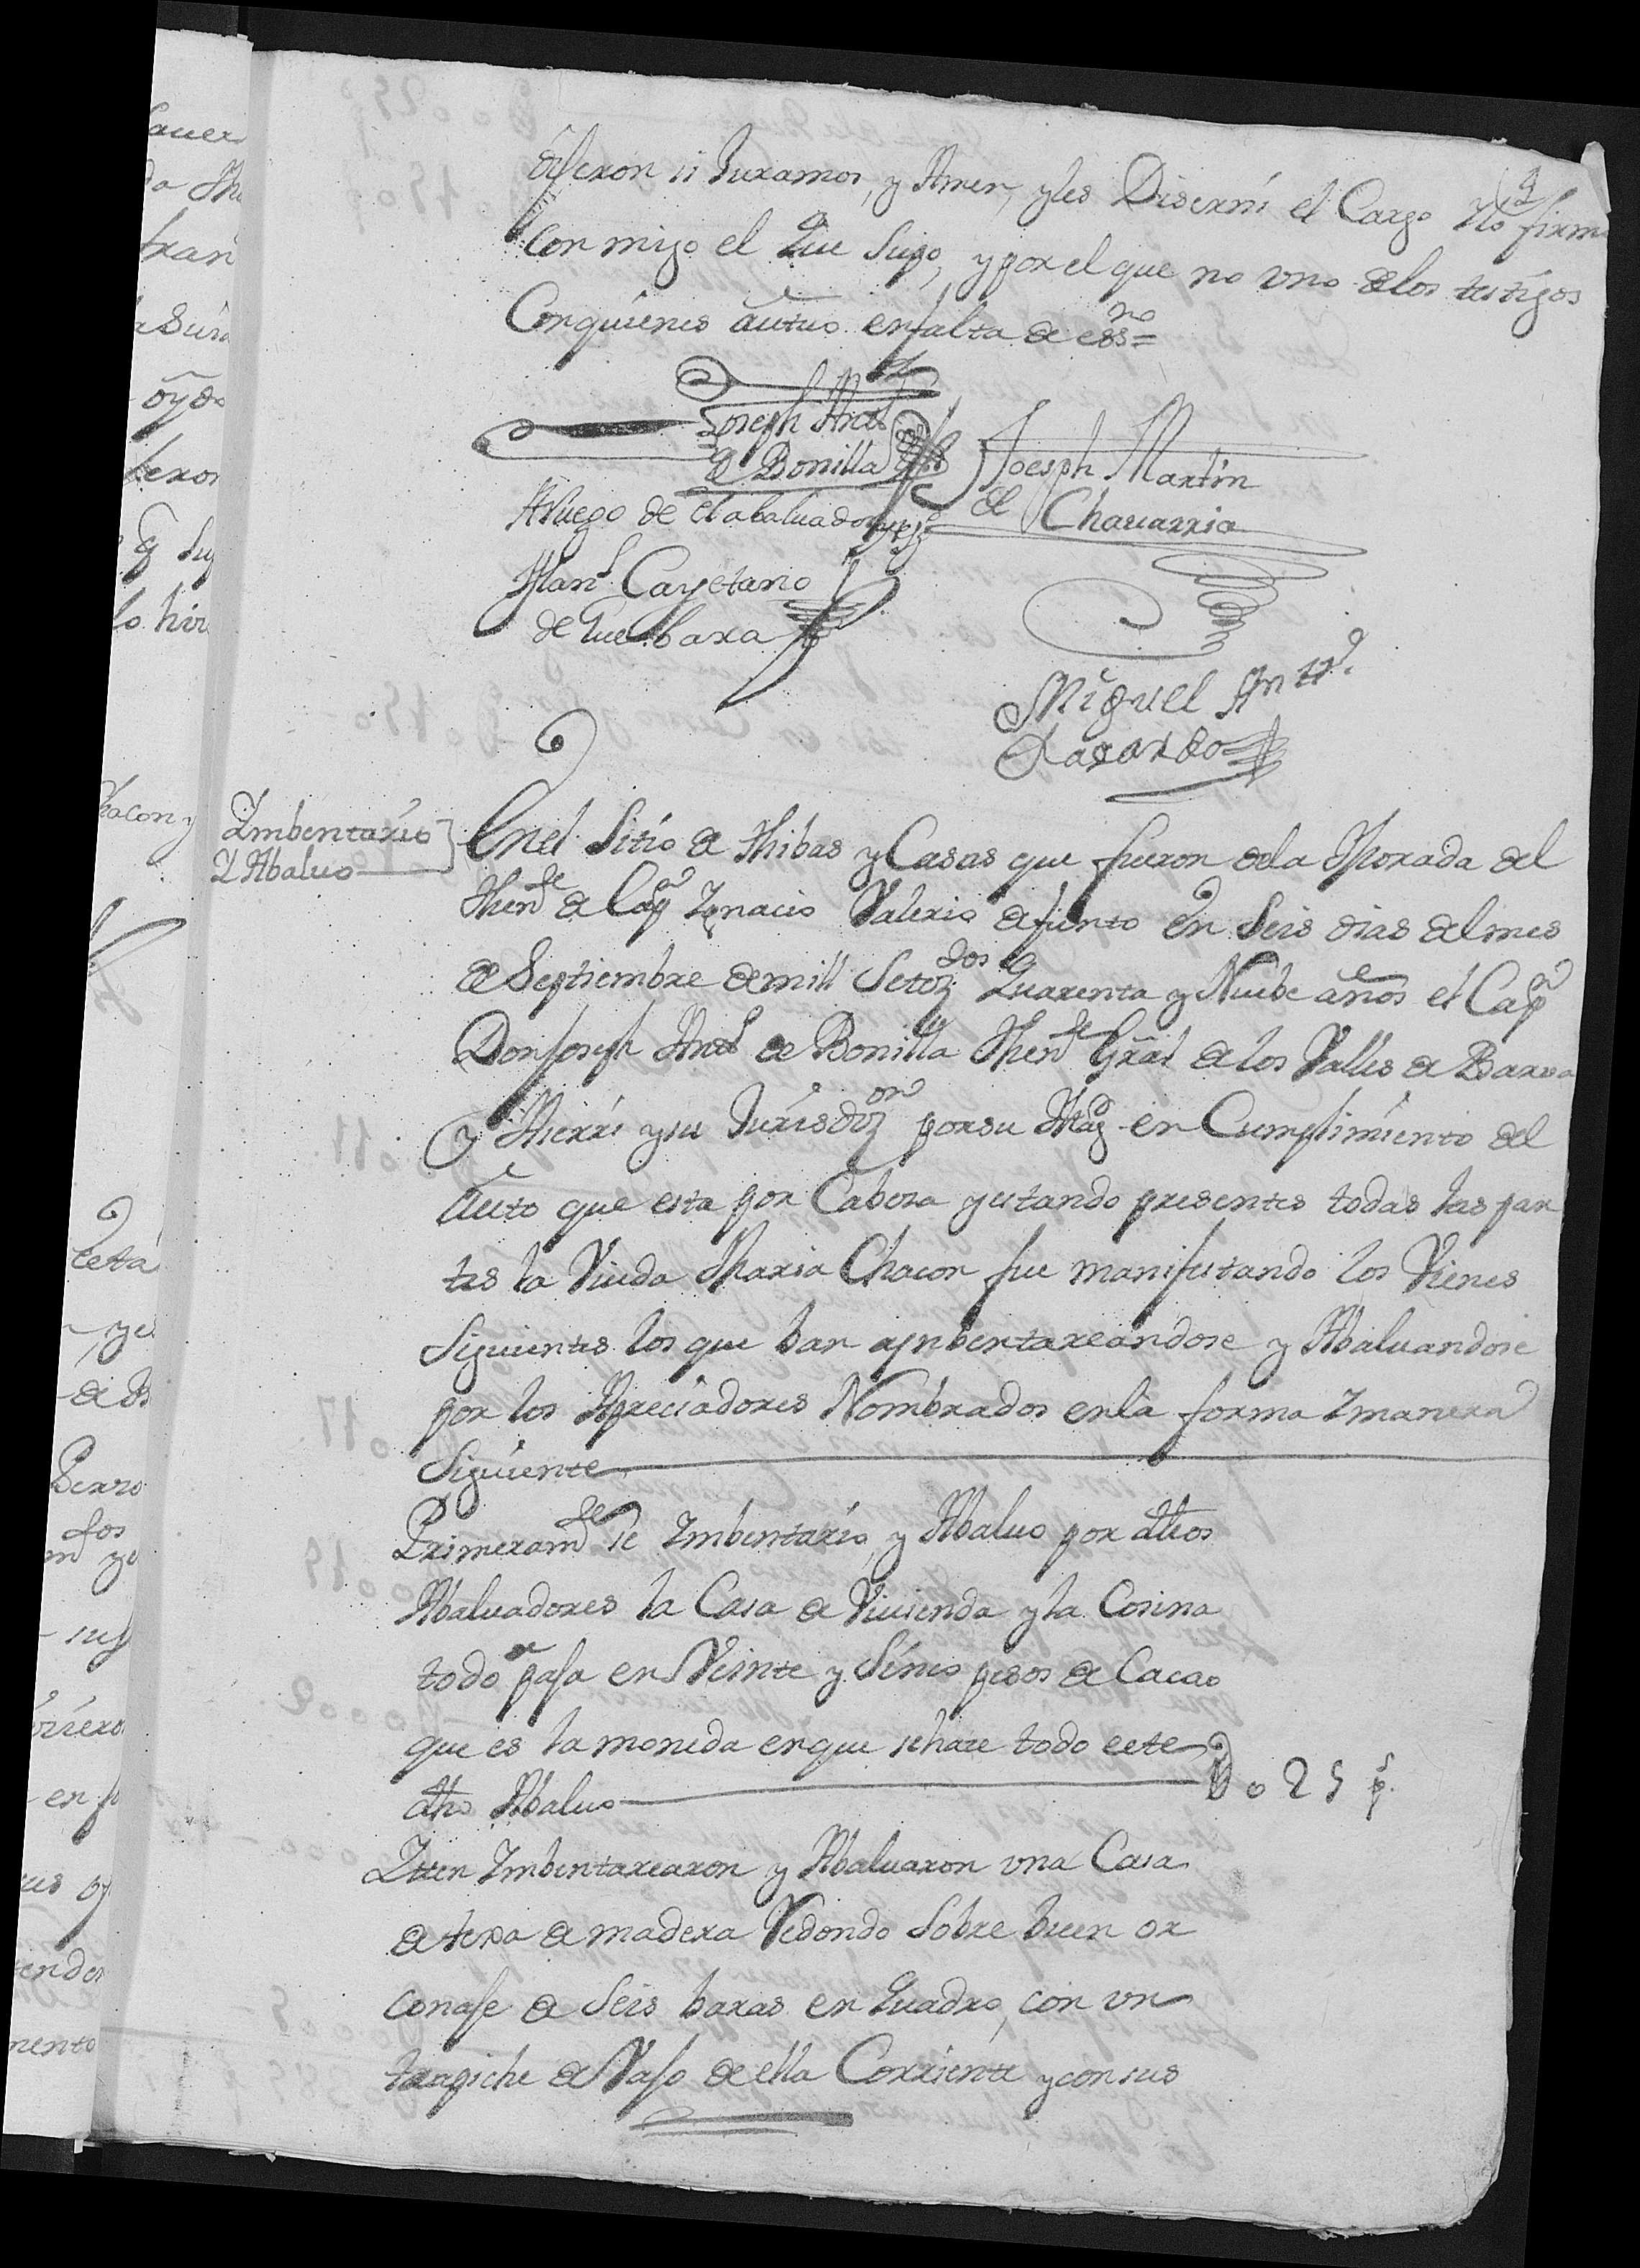 dijeron si Juramos, y Amen, y les Diserní el Cargo y lo firmo
Conmigo el Que Supo, y por el que no uno de los testigos
Con quienes aútuo en falta de essno=
Joseph Ands
de Bonilla
Joesph Martín
de Chauarria
A Ruego de el abaluador y tsgo
Manl Cayetano
de Guebara
Miguel Antto
Lararte
Ymbentario
Y Abaluo
En el Sitio de Thibas y Casas que fueron de la Morada del
Thente de Capn Ygnacio Valerio defunto En Seis dias del mes
de Septiembre de mill Setozdos Quarenta y Nuebe años el Capn
Don Joseph Andl de Bonilla Thente Gral de los Valles de Barua
y Aserrí y su Jurisdizon por su Magd en Cumplimiento del
aúto que esta por Cabesa y estando presentes todas las par
tes la Viuda Maria Chacon fue manifestando los Vienes
Siguientes los que ban aynbentareandose y Abaluandose
por los Apreciadores Nombrados en la forma Ymanera
Siguiente
Primeramte Se Ymbentarío, y Abaluo por dhos
Abaluadores la Casa de Viuienda y la Cosina
todo de paja en Veinte y Sinco pesos de Cacao
que es la moneda en que se hace todo este
dho Abaluo U o 25 ps
Yten Ymbentarearon y Abaluaron una Casa
de texa de madera Redondo Sobre buen or
conaje de Seis baras en Quadro, con un
trapiche de Vajo de ella Corriente y con sus